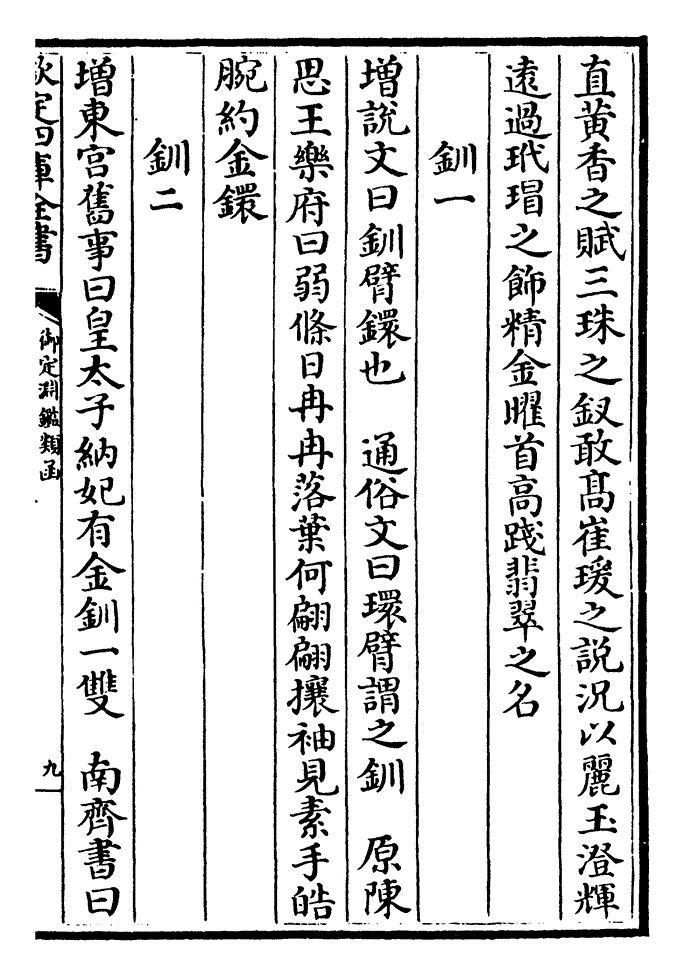 直黃香之賦三珠之釵敢髙崔瑗之説況以麗玉澄輝
遠過玳瑁之飾精金曜首高踐翡翠之名
釧一
增說文曰釧臂鐶也 通俗文曰環臂謂之釧 原陳
思王樂府曰弱條日冉冉落葉何翩翩攘袖見素手皓
腕約金鐶
釧二
增東宮舊事曰皇太子納妃有金釧一雙 南齊書曰
欽定四庫全書
御定淵鑑類函
九